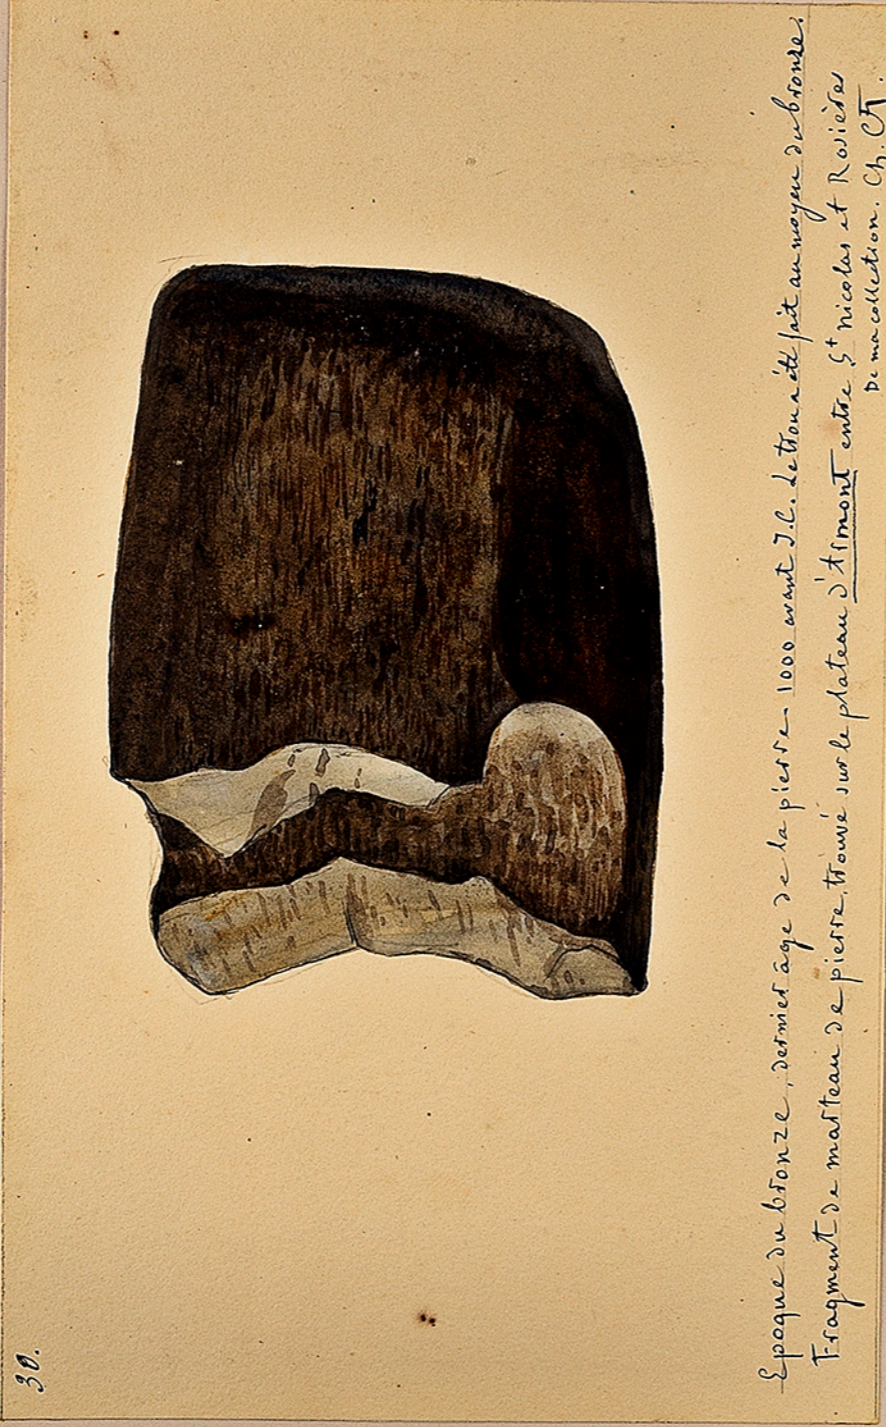 30.
Epoque du bronze, dernier âge de la pierre. 1000 avant J.C. Le trou a été fait au moyen du bronze.
Fragment de marteau de pierre, trouvé sur le plateau d'Aimont entre St Nicolas et Rosières
De ma collection. Ch. Ct.